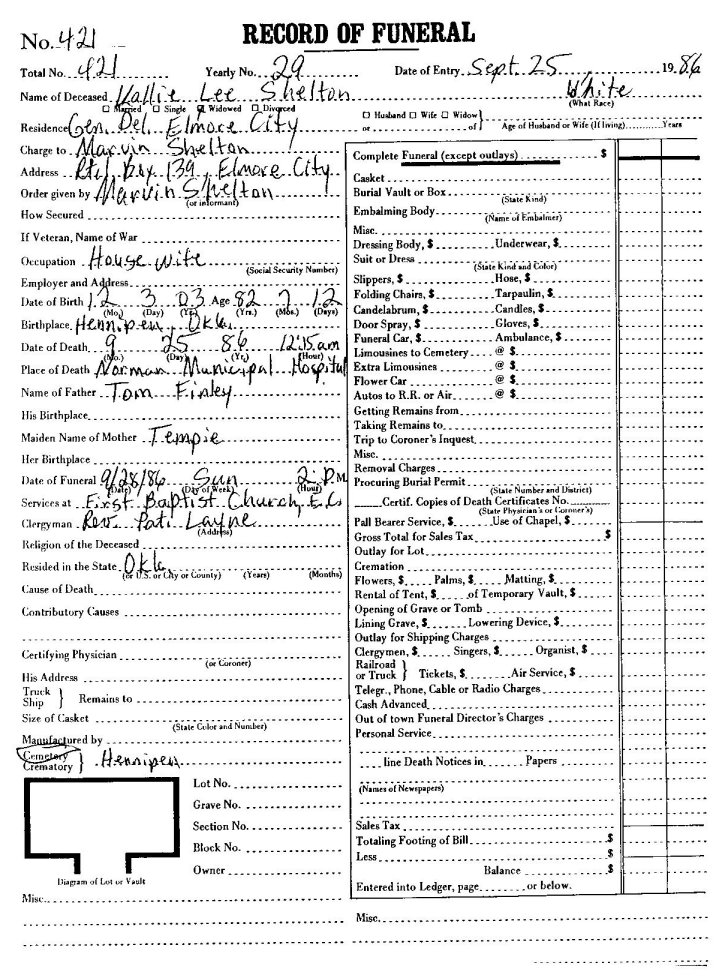 RECORD OF FUNERAL
No. 421
Total No. 421 Yearly No. 29 Date of Entry Sept. 25 1986
Name of Deceased Vallie Lee Shelton White
☐ Married ☐ Single ☑ Widowed ☐ Divorced (What Race)
Residence Gen. Del. Elmore City
☐ Husband ☐ Wife ☐ Widow} or of Age of Husband or Wife (If living) Years
Charge to Marvin Shelton
Address Rt 1, Box 139, Elmore City
Order given by Marvin Shelton
(or informant)
How Secured
If Veteran, Name of War
Occupation House wife
(Social Security Number)
Employer and Address
Date of Birth 12 3 03 Age 82 7 12
(Mo.) (Day) (Yr.) (Yrs.) (Mos.) (Days)
Birthplace Hennipen, Okla.
Date of Death 9 25 86 12:15 am
(Mo.) (Day) (Yr.) (Hour)
Place of Death Norman Municipal Hospital
Name of Father Tom Finley
His Birthplace
Maiden Name of Mother Tempie
Her Birthplace
Date of Funeral 9/28/86 Sun 2: P.M.
(Date) (Day of Week) (Hour)
Services at First Baptist Church, E.C.
Clergyman Rev. Pat Layne
(Address)
Religion of the Deceased
Resided in the State Okla
(or U.S. or City or County) (Years) (Months)
Cause of Death
Contributory Causes
Certifying Physician
(or Coroner)
His Address
Truck
Ship } Remains to
Size of Casket
(State Color and Number)
Manufactured by
Cemetery
Crematory } Hennipen
Lot No.
Grave No.
Section No.
Block No.
Owner
Diagram of Lot or Vault
Misc.
Complete Funeral (except outlays) $
Casket
Burial Vault or Box
(State Kind)
Embalming Body
(Name of Embalmer)
Misc.
Dressing Body, $ Underwear, $
Suit or Dress
(State Kind and Color)
Slippers, $ Hose, $
Folding Chairs, $ Tarpaulin, $
Candelabrum, $ Candles, $
Door Spray, $ Gloves, $
Funeral Car, $ Ambulance, $
Limousines to Cemetery @ $
Extra Limousines @ $
Flower Car @ $
Autos to R.R. or Air @ $
Getting Remains from
Taking Remains to
Trip to Coroner's Inquest
Misc.
Removal Charges
Procuring Burial Permit
(State Number and District)
Certif. Copies of Death Certificates No.
(State Physician's or Coroner's)
Pall Bearer Service, $ Use of Chapel, $
Gross Total for Sales Tax $
Outlay for Lot
Cremation
Flowers, $ Palms, $ Matting, $
Rental of Tent, $ of Temporary Vault, $
Opening of Grave or Tomb
Lining Grave, $ Lowering Device, $
Outlay for Shipping Charges
Clergymen, $ Singers, $ Organist, $
Railroad
or Truck } Tickets, $ Air Service, $
Telegr., Phone, Cable or Radio Charges
Cash Advanced
Out of town Funeral Director's Charges
Personal Service
line Death Notices in Papers
(Names of Newspapers)
Sales Tax
Totaling Footing of Bill $
Less $
Balance $
Entered into Ledger, page or below.
Misc.